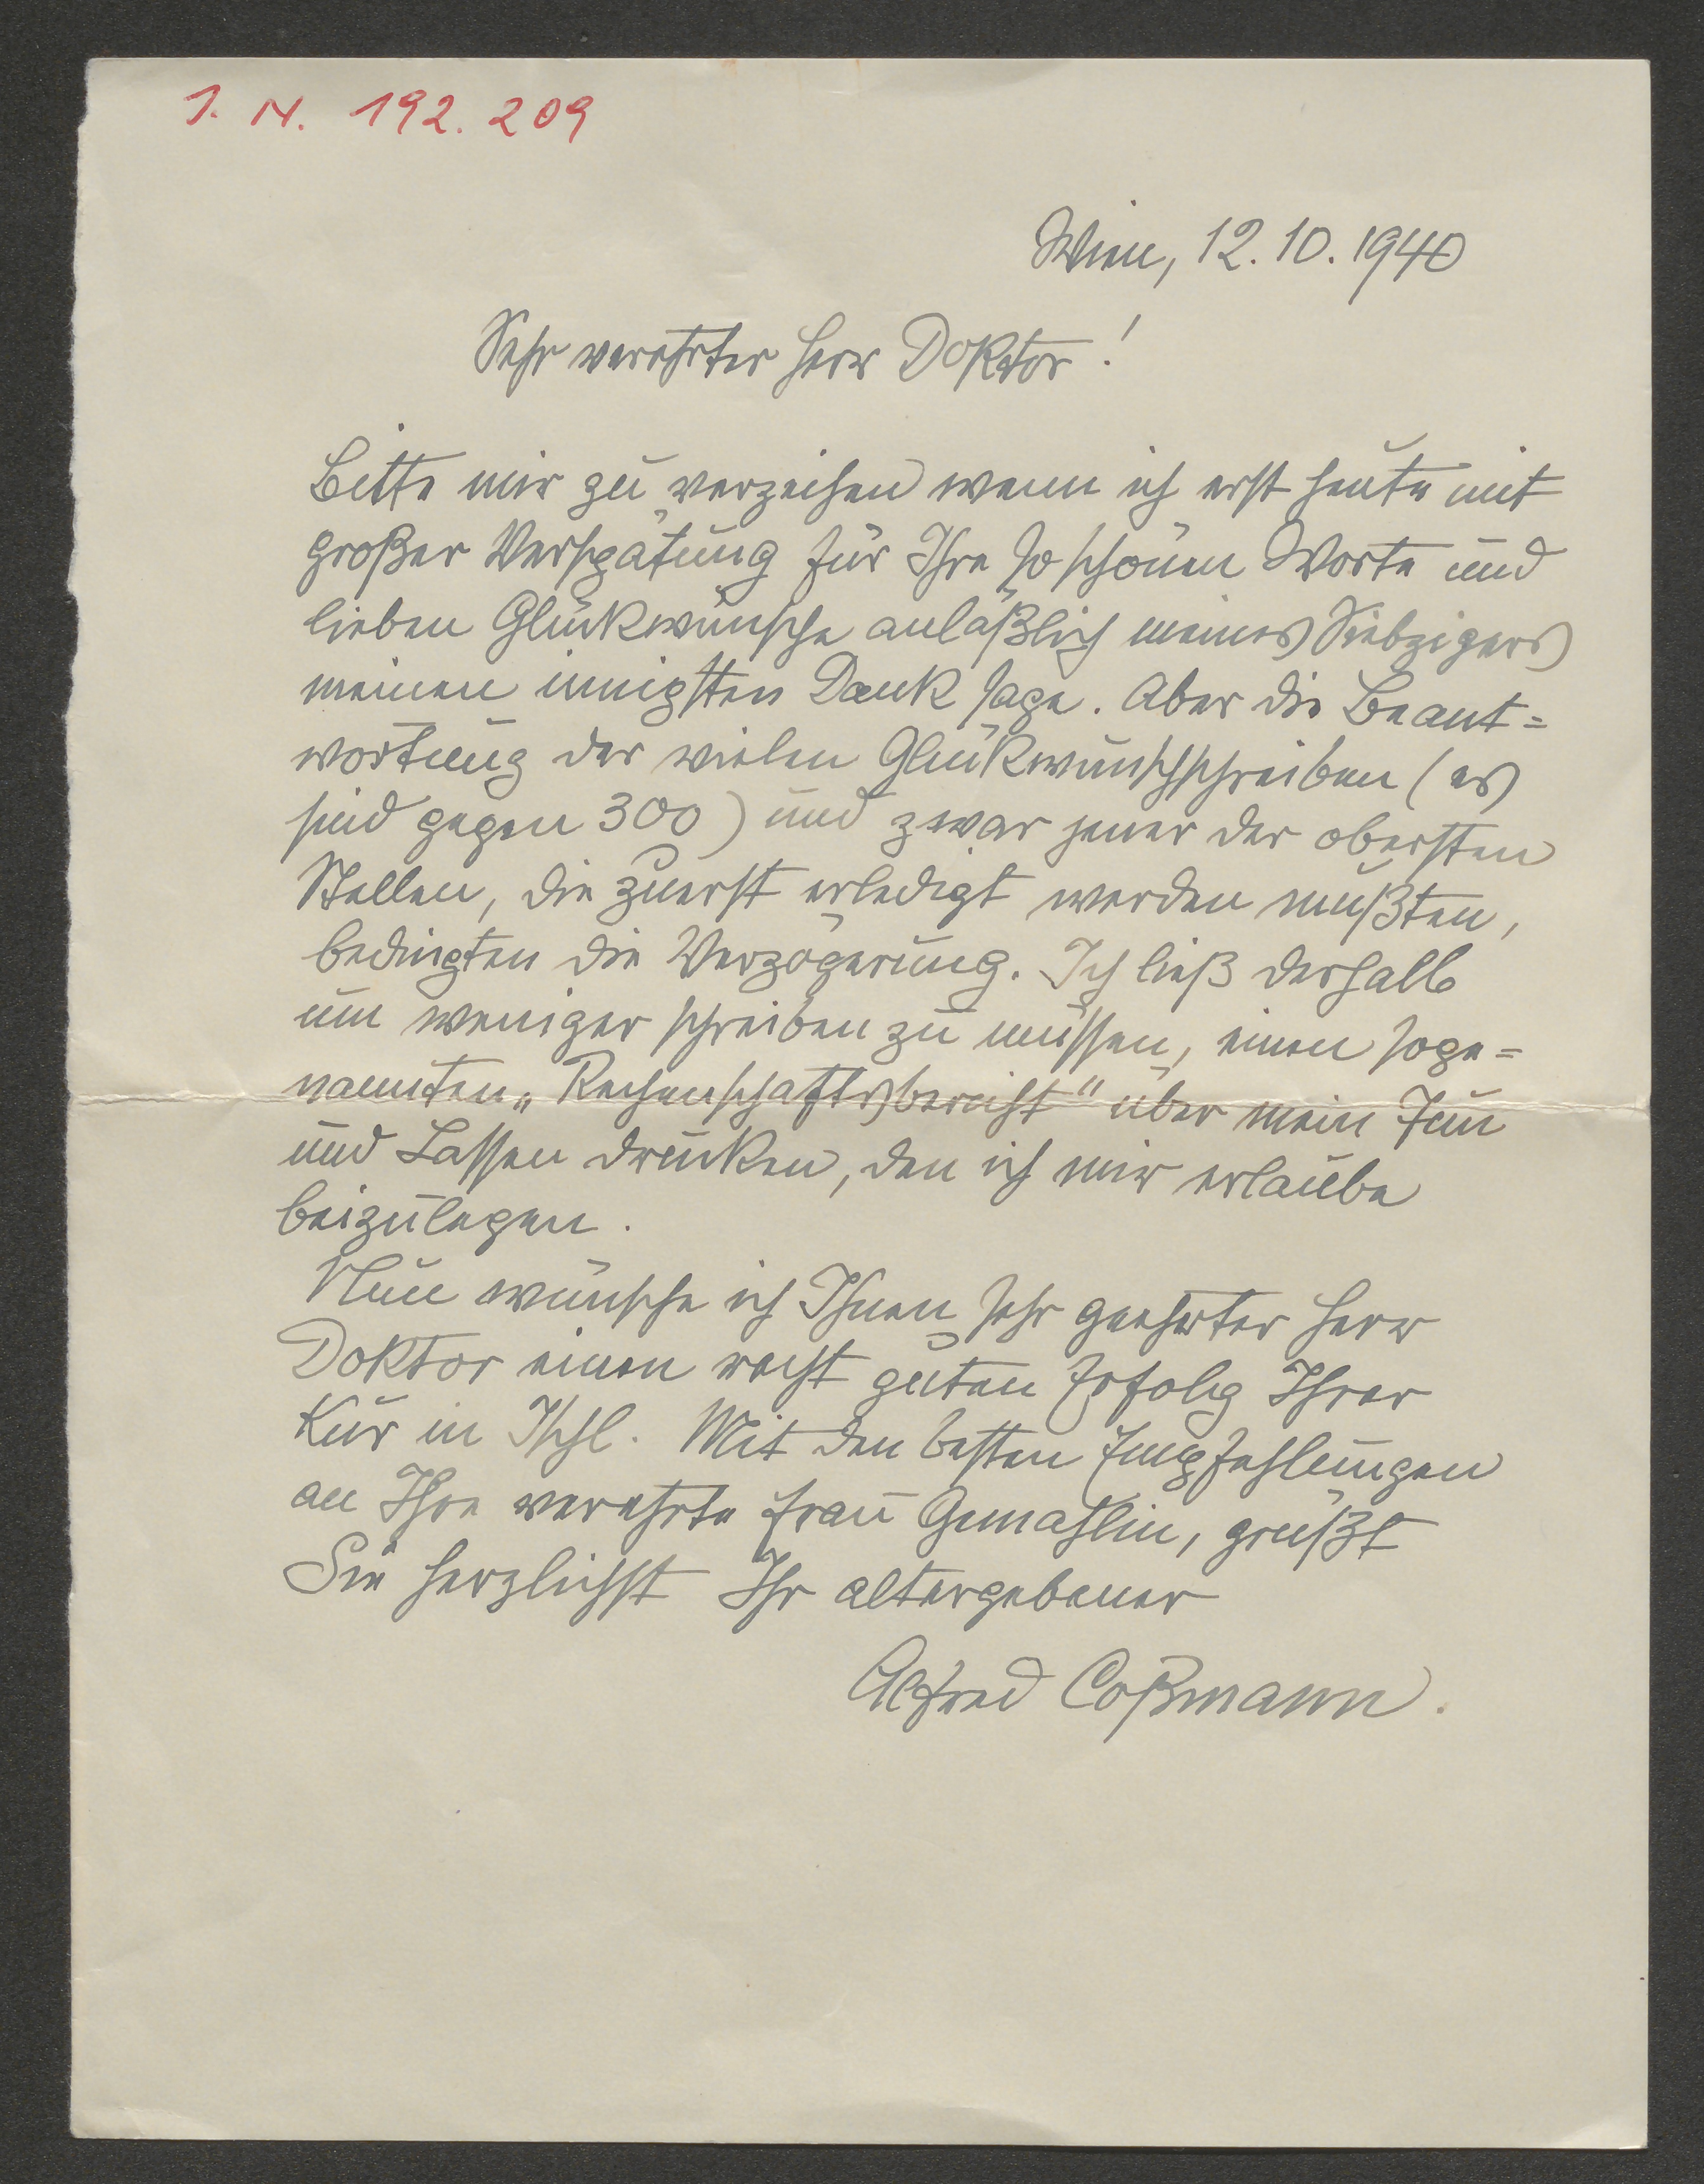 I. N. 192.209
Wien, 12.10.1940
Sehr verehrter Herr Doktor!
Bitte mir zu verzeihen wenn ich erst heute mit
großer Verspätung für Ihre so schönen Worte und
lieben Glückwünsche anläßlich meines Siebzigers
meinen innigsten Dank sage. Aber die Beant=
wortung der vielen Glückwunschschreiben (es
sind gegen 300) und zwar jener der obersten
Stellen, die zuerst erledigt werden mußten,
bedingten die Verzögerung. Ich ließ deshalb
um weniger schreiben zu müssen, einen soge=
nannten „Rechenschaftsbericht" über mein Tun
und Lassen drucken, den ich mir erlaube
beizulegen.
Nun wünsche ich Ihnen sehr geehrter Herr
Doktor einen recht guten Erfolg Ihrer
Kur in Ischl. Mit den besten Empfehlungen
an Ihre verehrte Frau Gemahlin, grüßt
Sie herzlichst Ihr altergebener
Alfred Coßmann.